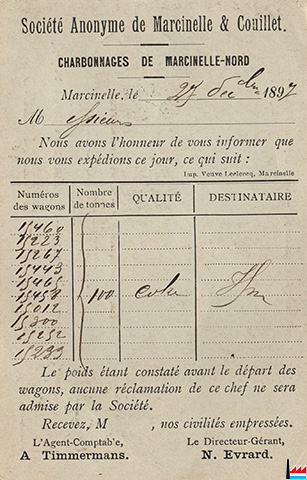 Société Anonyme de Marcinelle & Couillet.
CHARBONNAGES DE MARCINELLE-NORD
Marcinelle, le 27 Décbre 1897
Messieurs
Nous avons l'honneur de vous informer que
nous vous expédions ce jour, ce qui suit :
Imp. Veuve Leclercq, Marcinelle
Numéros des wagons
Nombre de tonnes
QUALITÉ
DESTINATAIRE
15460
15223
15267
15443
15465
15458
15012
15300
15252
15233
100
Le poids étant constaté avant le départ des
wagons, aucune réclamation de ce chef ne sera
admise par la Société.
Recevez, M , nos civilités empressées.
L'Agent-Comptab'e,
Le Directeur-Gérant,
A Timmermans.
N. Evrard.